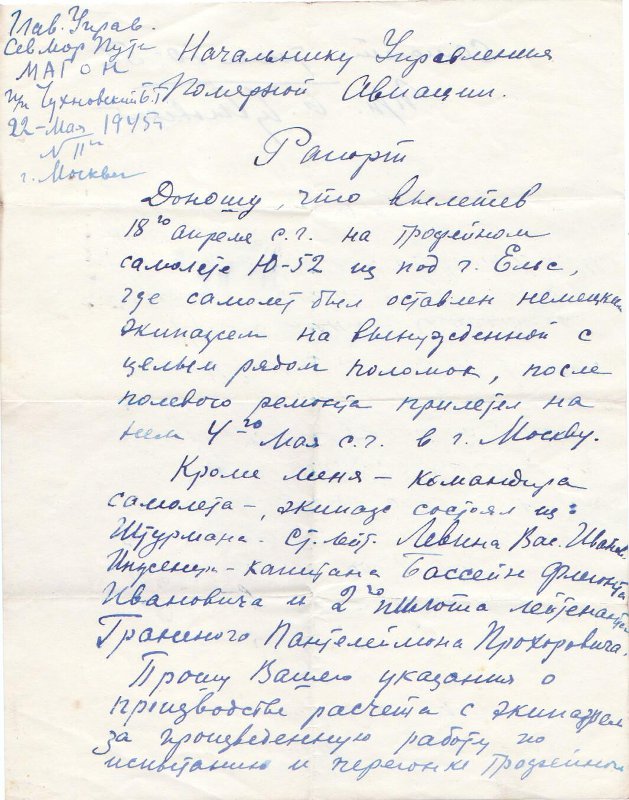 Глав. Управ.
Сев Мор Пути
МАГОН
п/п Чухновский Б.Г
22-Мая 1945г
N 11
г. Москва
Начальнику Управления
Полярной Авиации.
Рапорт
Доношу, что вылетев
18го апреля с.г. на трофейном
самолете Ю-52 из под г. Ельс,
где самолет был оставлен немецким
экипажем на вынужденной с
целым рядом поломок, после
полевого ремонта прилетел на
нем 4-го Мая с.г. в г. Москву.
Кроме меня - командира
самолета -, экипаж состоял из:
Штурмана - ст. лейт. Левина Вас. Иванов.
Инженера - капитана Бассейн Филиппа
Ивановича и 2го пилота лейтенанта
Пантелеймона Прохоровича.
Прошу Вашего указания о
производстве расчета с экипажем
за произведенную работу по
испытанию и перегонке трофейного